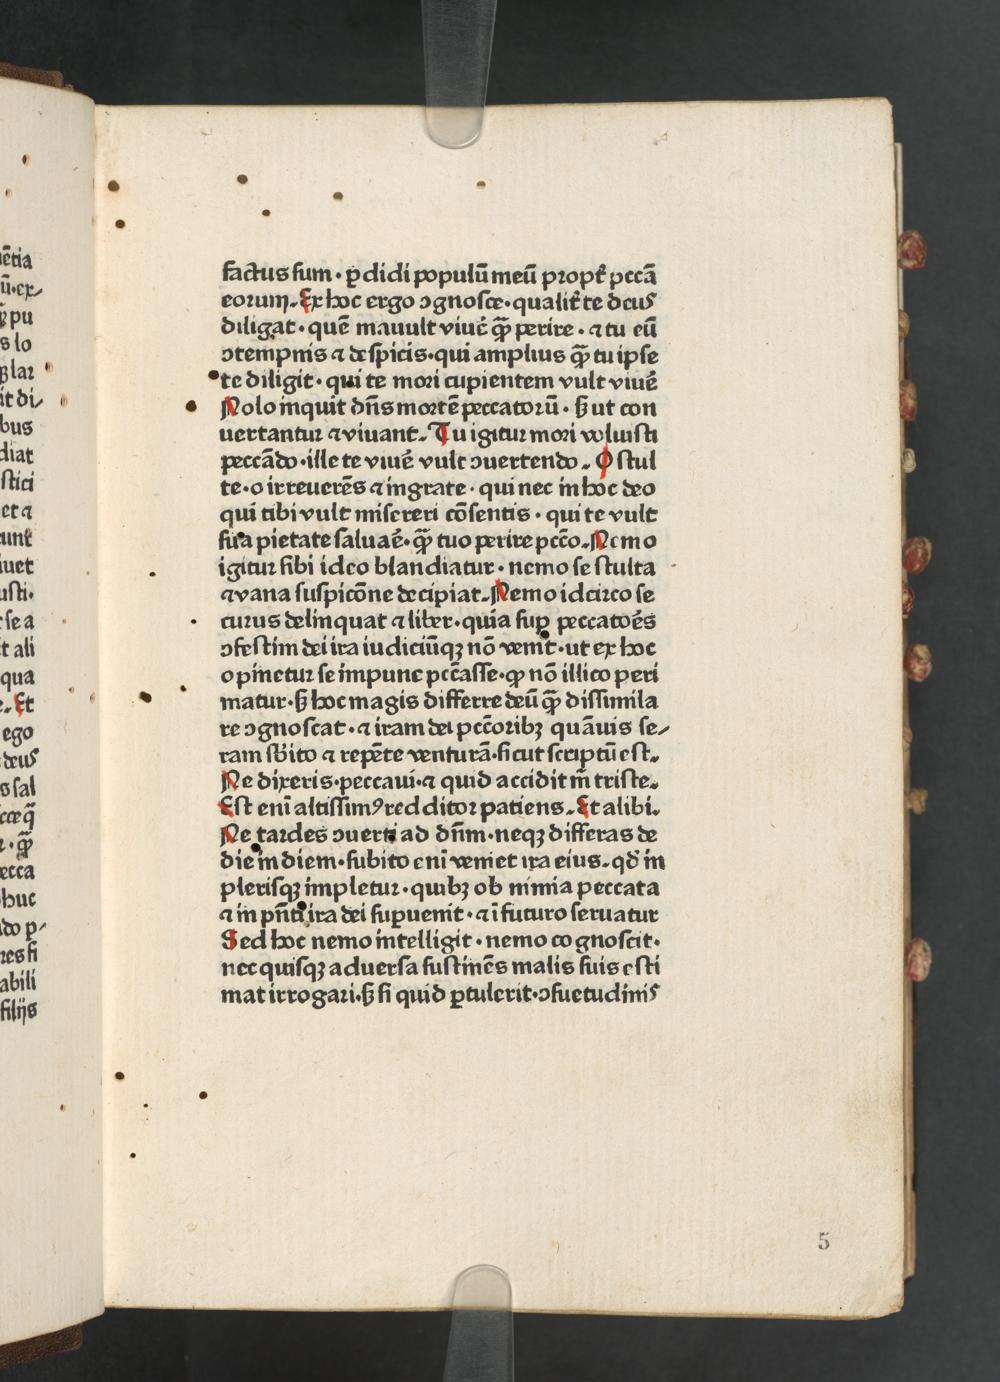 factus sum · ꝑdidi populū meū propť pccā
eorum. Ex hoc ergo ꝯgnosce · qualiť te deus
diligat · quē mauult viuē qꝫ̄ perire · ⁊ tu eū
ꝯtempnis ⁊ despicis · qui amplius qꝫ̄ tu ipse
te diligit · qui te mori cupientem vult viuē
Nolo inquit dn̄s mortē peccatorū · ꝭ ut con
uertantur ⁊ viuant. Tu igitur mori voluisti
peccādo · ille te viuē vult ꝯuertendo. O stul
te · o irreuerēs ⁊ ingrate · qui nec in hoc deo
qui tibi vult misereri cōsentis · qui te vult
sua pietate saluaē · qꝫ̄ tuo perire pcc̄o. Nemo
igitur sibi ideo blandiatur · nemo se stulta
⁊ vana suspicōne decipiat. Nemo idcirco se
curus delinquat ⁊ liber · quia suꝑ peccatoēs
ꝯfestim dei ira iudiciūqꝫ nō venit · ut ex hoc
opinetur se impune pcc̄asse · ꝙ nō illico peri
matur · ꝭ hoc magis differre deū qꝫ̄ dissimila
re ꝯgnoscat · ⁊ iram dei pcc̄oribꝫ quāuis se⸗
ram sb̄ito ⁊ repēte venturā · sicut scriptū est.
Ne dixeris · peccaui · ⁊ quid accidit m̄ triste.
Est eni altissimꝰ redditor patiens. Et alibi.
Ne tardes ꝯuerti ad dn̄m · neqꝫ differas de
die in diem · subito eni veniet ira eius. qd̄ in
plerisqꝫ impletur · quibꝫ ob nimia peccata
⁊ in pn̄ti ira dei suꝑuenit · ⁊ ī futuro seruatur
Sed hoc nemo intelligit · nemo cognoscit ·
nec quisqꝫ aduersa sustinēs malis suis esti
mat irrogari · ꝭ si quid ꝑtulerit · ꝯsuetudinis
5